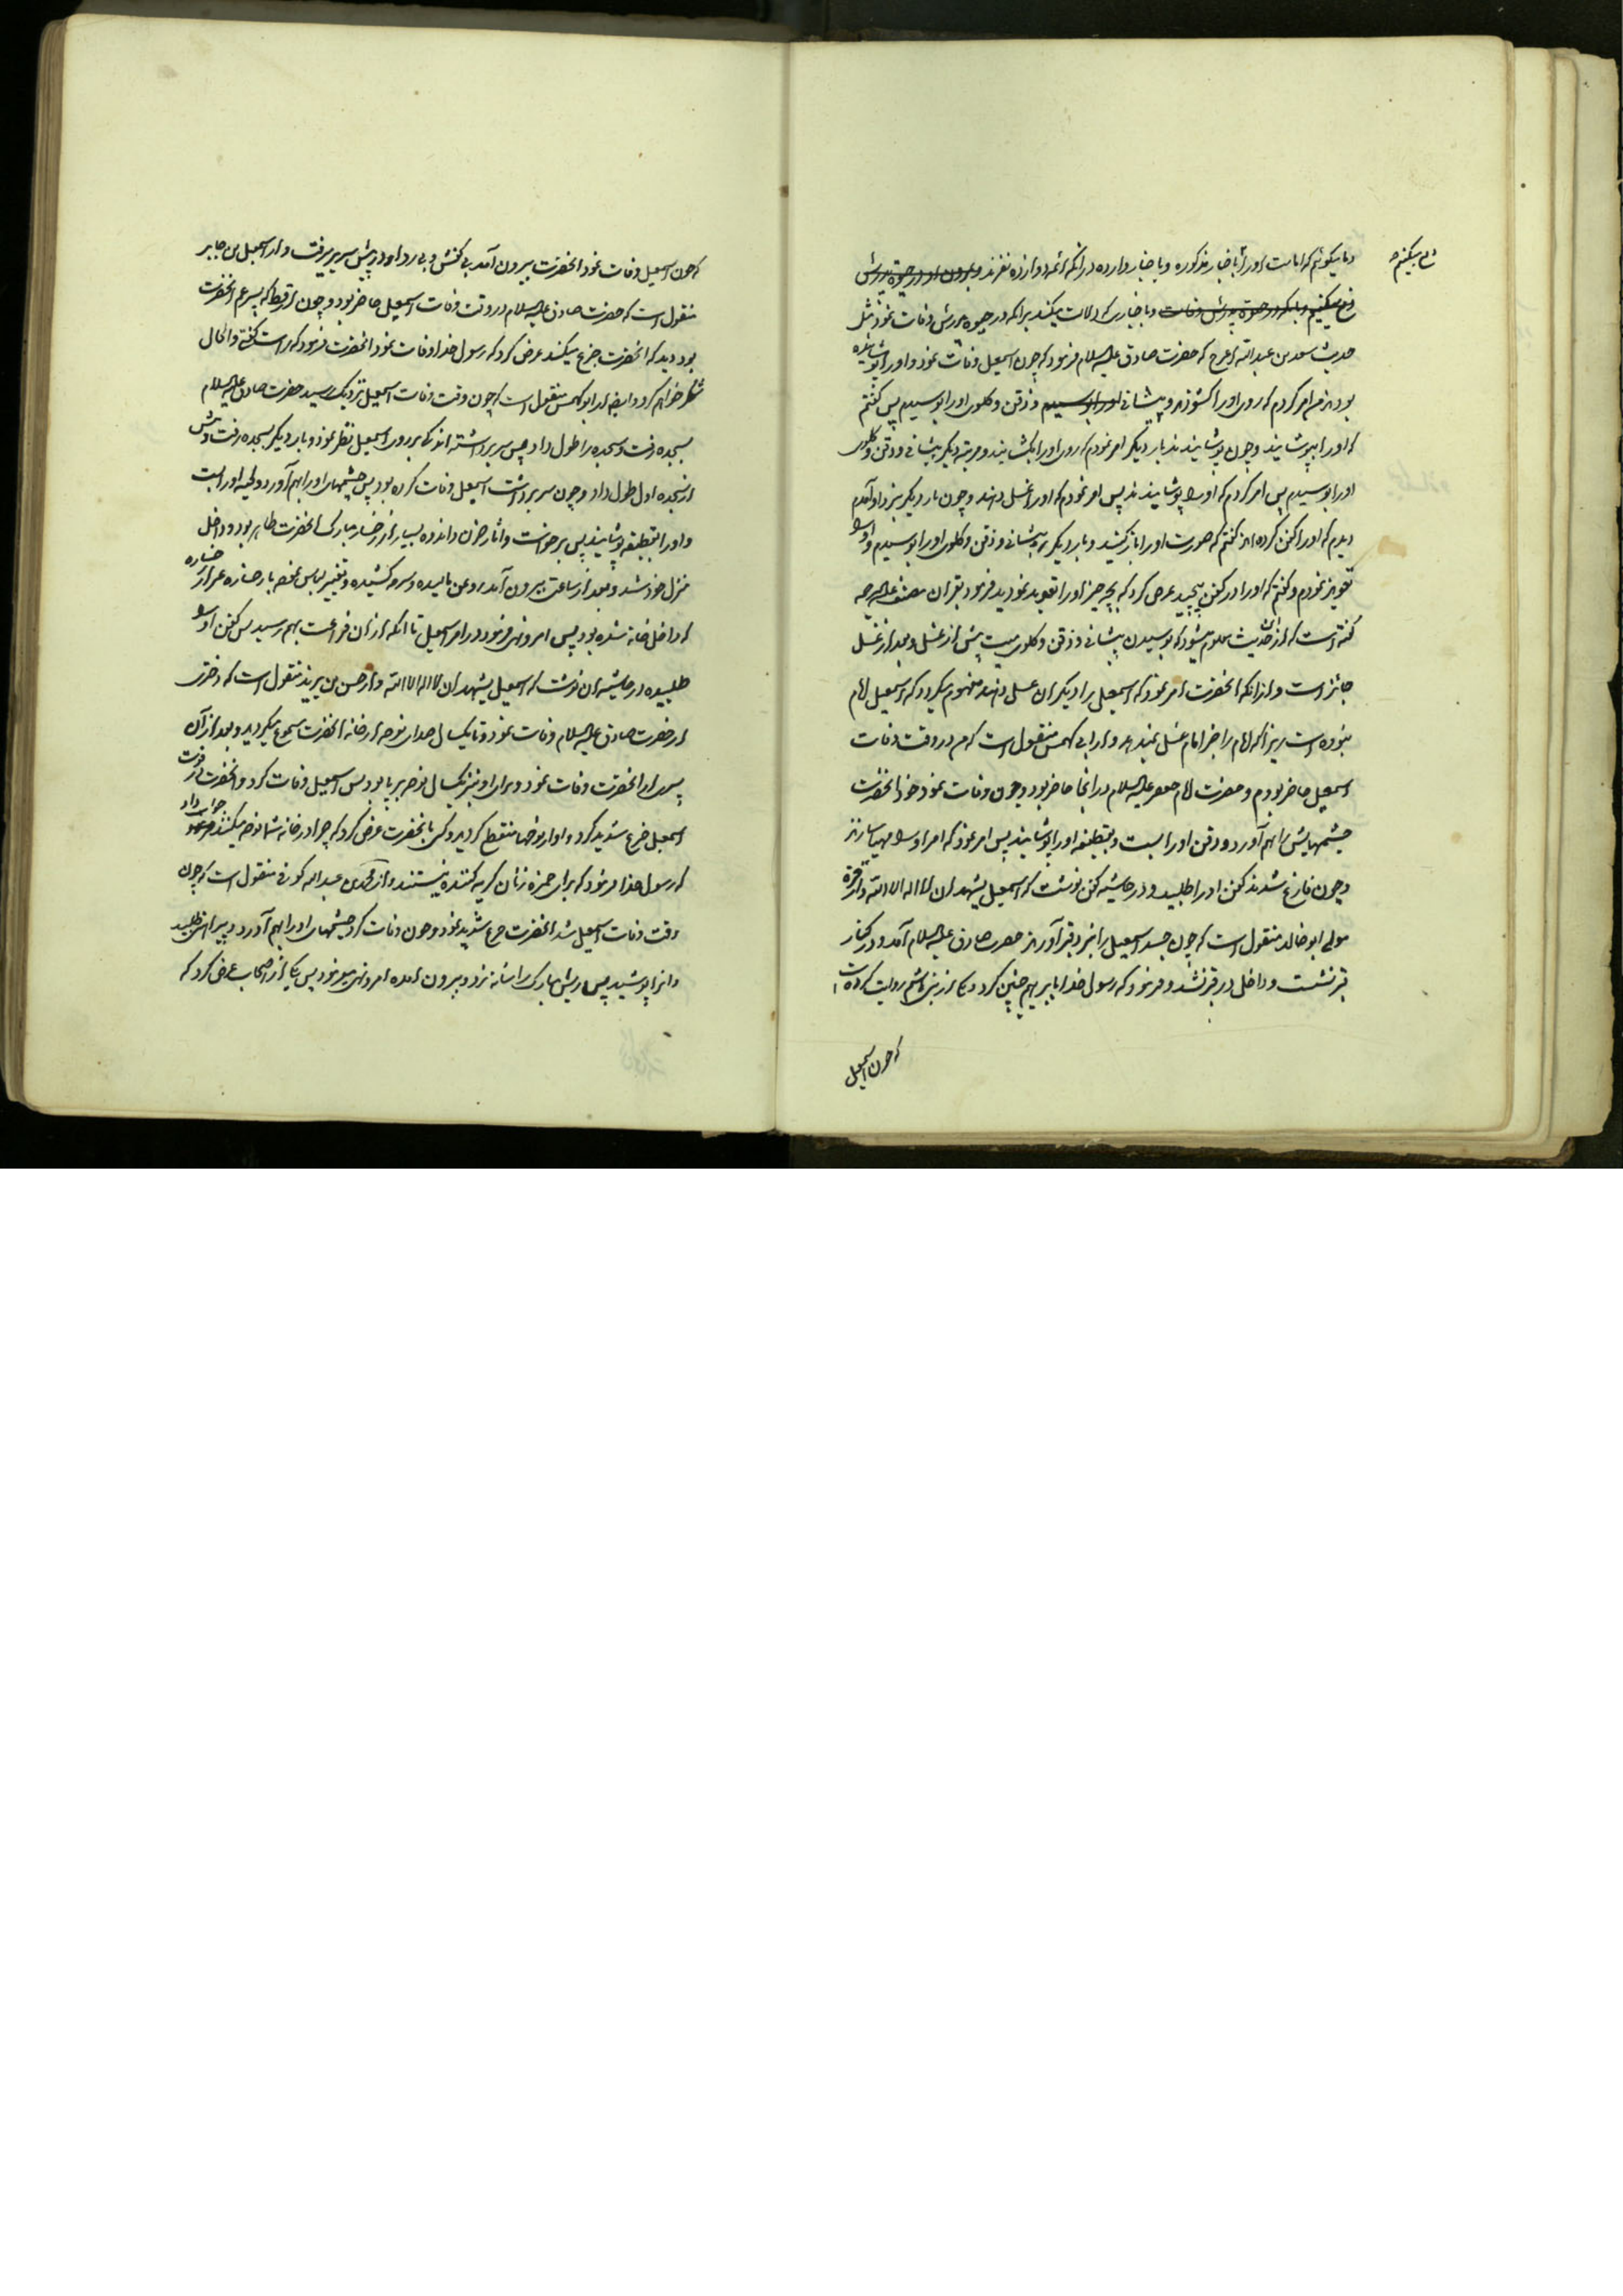 و ما میگوئیم که امامت او را باخبار مذکوره و باخبار وارده در آنکه ائمه دوازده نفرند و بودن او در حیوة پدرش
نفی میکنیم
نفی میکنیم و بآنکه در حیوة پدرش وفات و باخباری که دلالت میکند بر آنکه در حیوة پدرش وفات نمود مثل
حدیث سعد بن عبدالله اعرج که حضرت صادق علیه السلام فرمود که چون اسمعیل وفات نمود و او را پوشانیده
بودند من امر کردم که روی او را گشودند و پیشانی او را بوسیدم و ذقن و گلوی او را بوسیدم پس گفتم
که او را بپوشانید و چون پوشانیدند بار دیگر امر نمودم که روی او را بگشایند و مرتبه دیگر پیشانی و ذقن و گلوی
او را بوسیدم پس امر کردم که او را پوشانیدند پس امر نمودم که او را غسل دهند و چون بار دیگر بنزد او آمدم
دیدم که او را کفن کرده اند گفتم که صورت او را باز کنید و بار دیگر پیشانی و ذقن و گلوی او را بوسیدم و او را
تعویذ نمودم و گفتم که او را در کفن پیچید عرض کرد که بچه چیز او را تعویذ نمودید فرمود بقران مصنف علیه الرحمه
گفته است که از این حدیث معلوم میشود که بوسیدن پیشانی و ذقن و گلوی میت پیش از غسل و بعد از غسل
جائز است و از آنکه آنحضرت امر نمود که اسمعیل را دیگران غسل دهند مفهوم میگردد که اسمعیل امام
نبوده است زیرا که امام را جز امام غسل نمیدهد و از ابی کهمس منقول است که من در وقت وفات
اسمعیل حاضر بودم و حضرت امام جعفر علیه السلام در آنجا حاضر بود و چون وفات نمود خود آنحضرت
چشمهایش را بهم آورد و ذقن او را بست و بقطیفه او را پوشانید پس امر نمود که امر او را مهیا سازند
و چون فارغ شدند کفن او را طلبید و در حاشیه کفن نوشت که اسمعیل یشهد ان لا اله الا الله و از مره
مولی ابو خالد منقول است که چون جسد اسمعیل را بنزد قبر آوردند حضرت صادق علیه السلام آمد و در کنار
قبر نشست و داخل در قبر نشد و فرمود که رسول خدا با ابراهیم چنین کرد و یکی از بنی هاشم روایت کرده است
که چون اسمعیل
که چون اسمعیل وفات نمود آنحضرت بیرون آمد بی کفش و بی ردا و در پیش سریر میرفت و از اسمعیل بن جابر
منقول است که حضرت صادق علیه السلام در وقت وفات اسمعیل حاضر بود و چون ارقط که پسر عم آنحضرت
بود دید که آنحضرت جزع میکند عرض کرد که رسول خدا وفات نمود آنحضرت فرمود که راست گفتی و الحال
شکر خواهم کرد و ایضا از ابو کهمس منقول است که چون وقت وفات اسمعیل نزدیک رسید حضرت صادق علیه السلام
بسجده رفت و سجده را طول داد پس سر برداشته اندکی بر روی اسمعیل نظر نمود و بار دیگر بسجده رفت و بیش
از سجده اول طول داد و چون سر برداشت اسمعیل وفات کرده بود پس چشمهای او را بهم آورد و لحیه او را بست
و او را بقطیفه پوشانید پس برخواست و آثار حزن و اندوه بسیار از رخسار مبارک آنحضرت ظاهر بود و داخل
منزل خود شد و بعد از ساعتی بیرون آمد روغن مالیده و سرمه کشیده و تغییر لباس نموده با رخساره غیر از رخساره
که داخل خانه شده بود پس امر و نهی فرمود در امر اسمعیل تا آنکه از آن فراغت بهم رسید پس کفن او را
طلبیده در حاشیه آن نوشت که اسمعیل یشهد ان لا اله الا الله و از حسن بن یزید منقول است که دختری
از حضرت صادق علیه السلام وفات نمود و تا یکسال صدای نوحه از خانه آنحضرت مسموع میگردید و بعد از آن
پسری از آنحضرت وفات نمود و برای او نیز یکسال نوحه بر پا بود پس اسمعیل وفات کرد و آنحضرت در فوت
اسمعیل جزع شدید کرد و نوحها منقطع گردید و کسی بآنحضرت عرض کرد که چرا در خانه شما نوحه میکنند جواب داد
که رسول خدا فرمود که برای حمزه زنان گریه کننده نیستند و از محمد بن عبدالله کوفی منقول است که چون
وقت وفات اسمعیل شد آنحضرت جزع شدید نمود و چون وفات کرد چشمهای او را بهم آورد و پیراهن طلبید
و آنرا پوشید پس ریش مبارک را شانه زد و بیرون آمده امر و نهی میفرمود پس یکی از اصحاب عرض کرد که